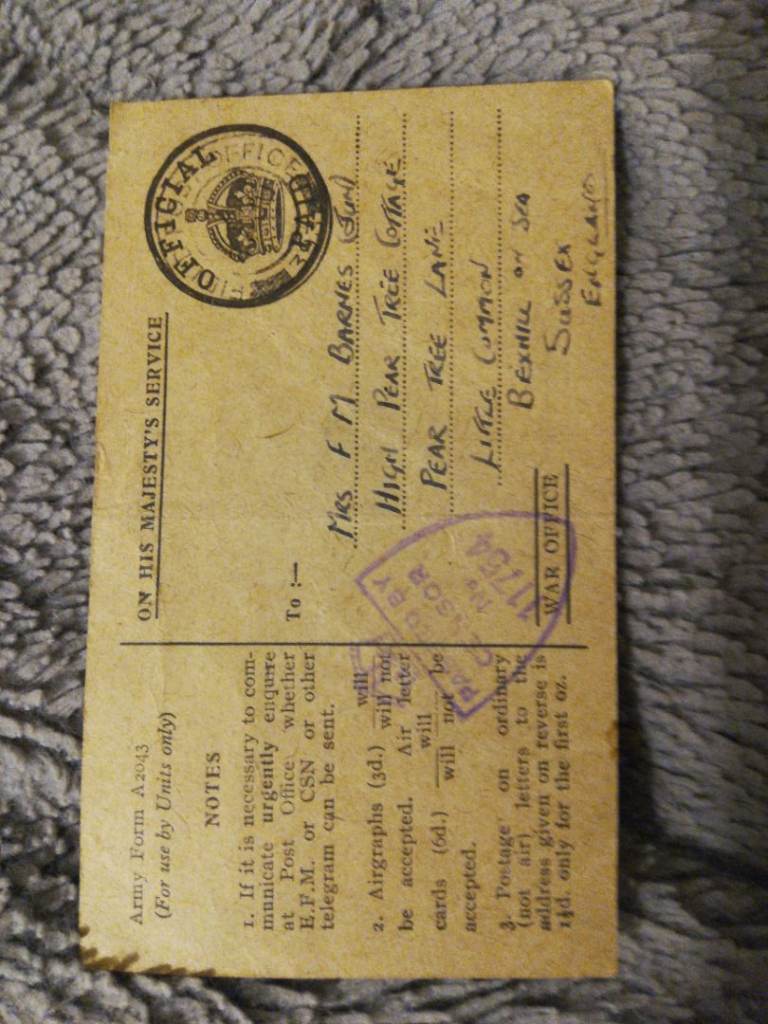 Army Form A2043
(For use by Units only)
NOTES
1. If it is necessary to com-
municate urgently enquire
at Post Office whether
E.F.M. or CSN or other
telegram can be sent.
will
2. Airgraphs (3d.) will not
be accepted. Air letter
will
cards (6d.) will not be
accepted.
3. Postage on ordinary
(not air) letters to the
address given on reverse is
1½d. only for the first oz.
ON HIS MAJESTY'S SERVICE
OFFICIAL
PAID
To :—
MRS F M BARNES
HIGH PEAR TREE COTTAGE
PEAR TREE LANE
LITTLE COMMON
BEXHILL ON SEA
SUSSEX
ENGLAND
PASSED BY
CENSOR
No
11754
WAR OFFICE